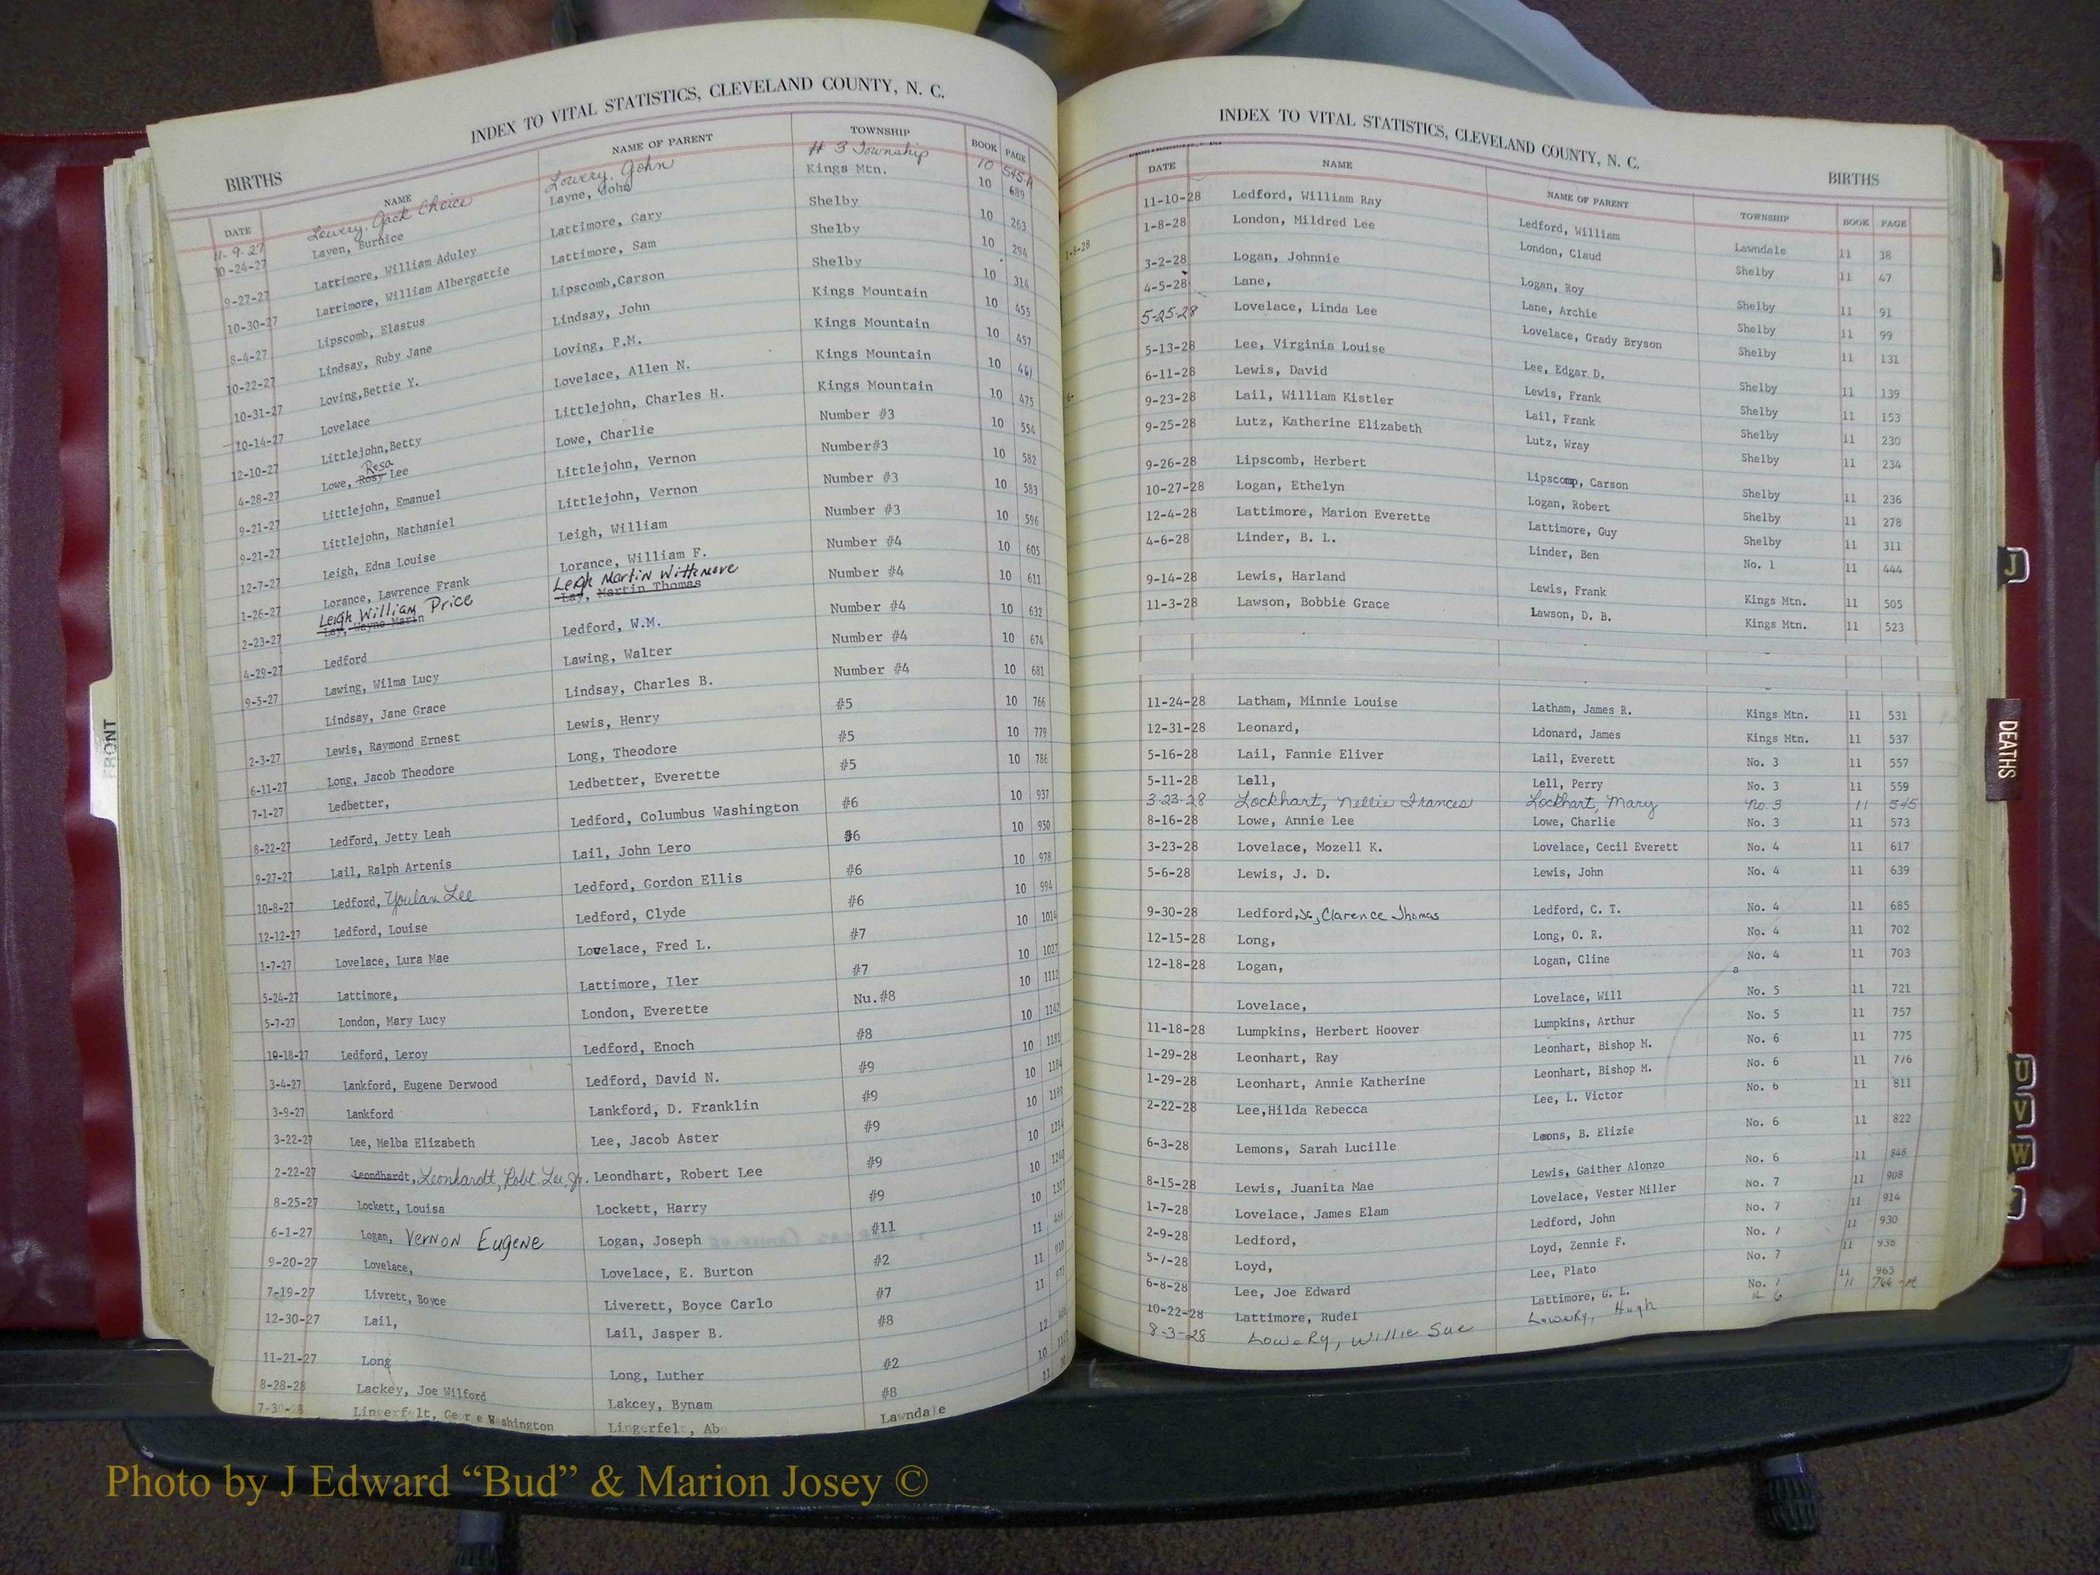 INDEX TO VITAL STATISTICS, CLEVELAND COUNTY, N. C.
BIRTHS
DATE NAME NAME OF PARENT TOWNSHIP BOOK PAGE
11-9-27 Lowery, Jack Choice Lowery, John # 3 Township 10 545-A
10-24-27 Layen, Burnice Layne, John Kings Mtn. 10 689
9-27-27 Lattimore, William Aduley Lattimore, Gary Shelby 10 263
10-30-27 Lattimore, William Albergattie Lattimore, Sam Shelby 10 294
8-4-27 Lipscomb, Elastus Lipscomb,Carson Shelby 10 314
10-22-27 Lindsay, Ruby Jane Lindsay, John Kings Mountain 10 455
10-31-27 Loving,Bettie Y. Loving, P.M. Kings Mountain 10 457
10-14-27 Lovelace Lovelace, Allen N. Kings Mountain 10 461
12-10-27 Littlejohn,Betty Littlejohn, Charles H. Kings Mountain 10 475
4-28-27 Lowe, Rosy Rosa Lee Lowe, Charlie Number #3 10 554
9-21-27 Littlejohn, Emanuel Littlejohn, Vernon Number#3 10 582
9-21-27 Littlejohn, Nathaniel Littlejohn, Vernon Number #3 10 583
12-7-27 Leigh, Edna Louise Leigh, William Number #3 10 596
1-26-27 Lorance, Lawrence Frank Lorance, William F. Number #4 10 605
Leigh William Price Leigh Martin Wittemore
2-23-27 Lay, Wayne Marin Lay, Martin Thomas Number #4 10 611
4-29-27 Ledford Ledford, W.M. Number #4 10 632
9-5-27 Lawing, Wilma Lucy Lawing, Walter Number #4 10 674
Lindsay, Jane Grace Lindsay, Charles B. Number #4 10 681
2-3-27 Lewis, Raymond Ernest Lewis, Henry #5 10 766
6-11-27 Long, Jacob Theodore Long, Theodore #5 10 779
7-1-27 Ledbetter, Ledbetter, Everette #5 10 786
8-22-27 Ledford, Jetty Leah Ledford, Columbus Washington #6 10 937
9-27-27 Lail, Ralph Artenis Lail, John Lero #6 10 950
10-8-27 Ledford, Youlan Lee Ledford, Gordon Ellis #6 10 978
12-12-27 Ledford, Louise Ledford, Clyde #6 10 994
1-7-27 Lovelace, Lura Mae Lovelace, Fred L. #7 10 1014
5-24-27 Lattimore, Lattimore, Iler #7 10 1027
5-7-27 London, Mary Lucy London, Everette Nu.#8 10 1112
10-18-27 Ledford, Leroy Ledford, Enoch #8 10 1142
3-4-27 Lankford, Eugene Derwood Ledford, David N. #9 10 1181
3-9-27 Lankford Lankford, D. Franklin #9 10 1184
3-22-27 Lee, Melba Elizabeth Lee, Jacob Aster #9 10 1189
2-22-27 Leondhardt, Leonhardt, Robt. Lee, Jr. Leondhart, Robert Lee #9 10
8-25-27 Lockett, Louisa Lockett, Harry #9 10
6-1-27 Logan, Vernon Eugene Logan, Joseph #11 10
9-20-27 Lovelace, Lovelace, E. Burton #2 11
7-19-27 Livrett, Boyce Liverett, Boyce Carlo #7 11
12-30-27 Lail, Lail, Jasper B. #8 11
11-21-27 Long Long, Luther #2 12
8-28-28 Lackey, Joe Wilford Lakcey, Bynam #8 10
7-30- 8 Lingerfelt, George Washington Lingerfelt, Lawndale 11
FRONT
INDEX TO VITAL STATISTICS, CLEVELAND COUNTY, N. C.
BIRTHS
DATE NAME NAME OF PARENT TOWNSHIP BOOK PAGE
11-10-28 Ledford, William Ray Ledford, William Lawndale 11 38
1-8-28 London, Mildred Lee London, Claud Shelby 11 47
1-8-28
3-2-28 Logan, Johnnie Logan, Roy Shelby 11 91
4-5-28 Lane, Lane, Archie Shelby 11 99
5-25-28 Lovelace, Linda Lee Lovelace, Grady Bryson Shelby 11 131
5-13-28 Lee, Virginia Louise Lee, Edgar D. Shelby 11 139
6-11-28 Lewis, David Lewis, Frank Shelby 11 153
9-23-28 Lail, William Kistler Lail, Frank Shelby 11 230
9-25-28 Lutz, Katherine Elizabeth Lutz, Wray Shelby 11 234
9-26-28 Lipscomb, Herbert Lipscomp, Carson Shelby 11 236
10-27-28 Logan, Ethelyn Logan, Robert Shelby 11 278
12-4-28 Lattimore, Marion Everette Lattimore, Guy Shelby 11 311
4-6-28 Linder, B. L. Linder, Ben No. 1 11 444
9-14-28 Lewis, Harland Lewis, Frank Kings Mtn. 11 505
11-3-28 Lawson, Bobbie Grace Lawson, D. B. Kings Mtn. 11 523
11-24-28 Latham, Minnie Louise Latham, James R. Kings Mtn. 11 531
12-31-28 Leonard, Ldonard, James Kings Mtn. 11 537
5-16-28 Lail, Fannie Eliver Lail, Everett No. 3 11 557
5-11-28 Lell, Lell, Perry No. 3 11 559
3-23-28 Lockhart, Nellie Frances Lockhart, Mary No. 3 11 545
8-16-28 Lowe, Annie Lee Lowe, Charlie No. 3 11 573
3-23-28 Lovelace, Mozell K. Lovelace, Cecil Everett No. 4 11 617
5-6-28 Lewis, J. D. Lewis, John No. 4 11 639
9-30-28 Ledford,Jr., Clarence Thomas Ledford, C. T. No. 4 11 685
12-15-28 Long, Long, O. R. No. 4 11 702
12-18-28 Logan, Logan, Cline No. 4 11 703
a
Lovelace, Lovelace, Will No. 5 11 721
11-18-28 Lumpkins, Herbert Hoover Lumpkins, Arthur No. 5 11 757
1-29-28 Leonhart, Ray Leonhart, Bishop M. No. 6 11 775
1-29-28 Leonhart, Annie Katherine Leonhart, Bishop M. No. 6 11 776
2-22-28 Lee,Hilda Rebecca Lee, L. Victor No. 6 11 811
6-3-28 Lemons, Sarah Lucille Lemons, B. Elizie No. 6 11 822
8-15-28 Lewis, Juanita Mae Lewis, Gaither Alonzo No. 6 11 848
1-7-28 Lovelace, James Elam Lovelace, Vester Miller No. 7 11 908
2-9-28 Ledford, Ledford, John No. 7 11 914
5-7-28 Loyd, Loyd, Zennie F. No. 7 11 930
6-8-28 Lee, Joe Edward Lee, Plato No. 7 11 938
10-22-28 Lattimore, Rudel Lattimore, G. L. No. 7 11 965
8-3-28 Lowery, Willie Sue Lowery, Hugh # 6 11 766-A
J
DEATHS
U
V
W
Photo by J Edward “Bud” & Marion Josey ©